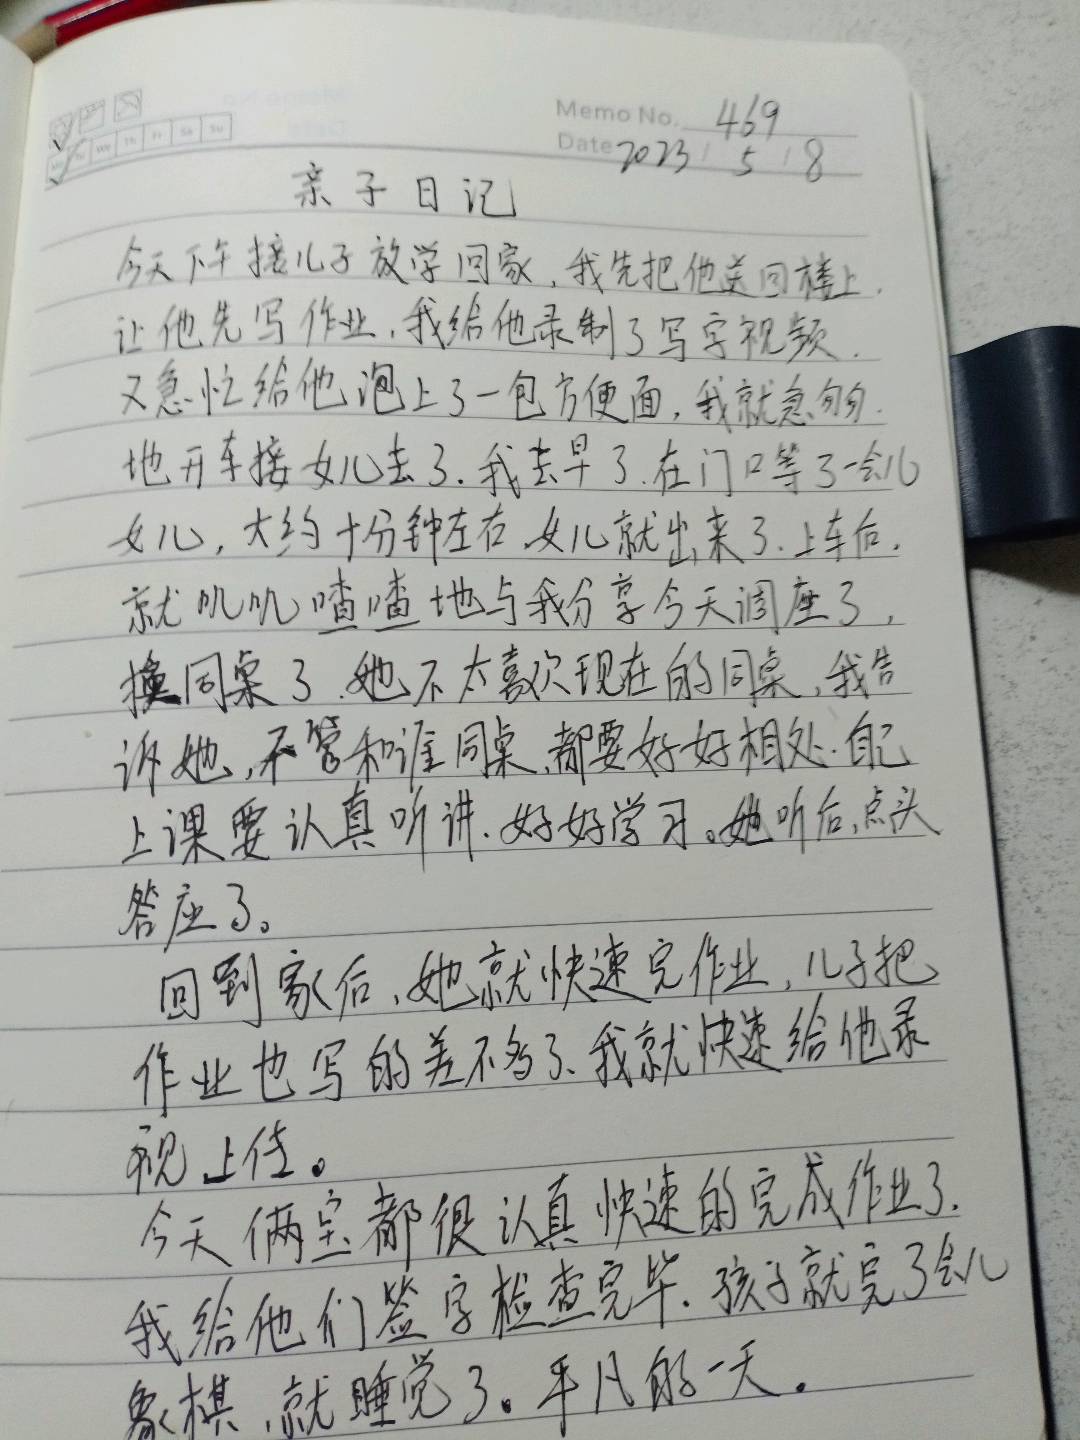 Memo No. 469
Mo Tu We Th Fr Sa Su
Date 2023 / 5 / 8
亲子日记
今天下午接儿子放学回家，我先把他送回楼上，
让他先写作业，我给他录制了写字视频，
又急忙给他泡上了一包方便面，我就急匆匆
地开车接女儿去了.我去早了.在门口等了一会儿
女儿，大约十分钟左右，女儿就出来了.上车后，
就叽叽喳喳地与我分享今天调座了，
换同桌了.她不太喜欢现在的同桌，我告
诉她，不管和谁同桌，都要好好相处.自己
上课要认真听讲.好好学习。她听后，点头
答应了。
回到家后，她就快速完作业，儿子把
作业也写的差不多了、我就快速给他录
视上传。
今天俩宝都很认真快速的完成作业了.
我给他们签字检查完毕.孩子就完了会儿
象棋，就睡觉了。平凡的一天.